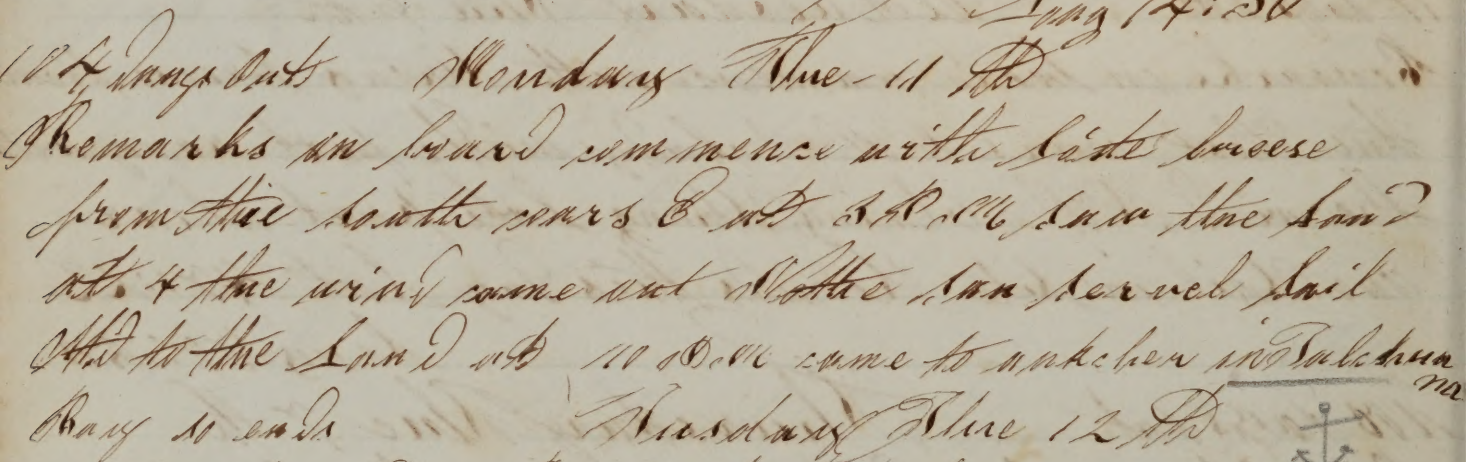 Long 14:30
104 Days Out Monday The 11 th
Remarks on board commence with lite breese
from the south cours E at 3 P.M saw the land
at 4 the wind came out Nothe saw servel sail
Std to the land at 10 P.M came to ankcher in Talchua
na
Bay so ends Tuesday The 12 th